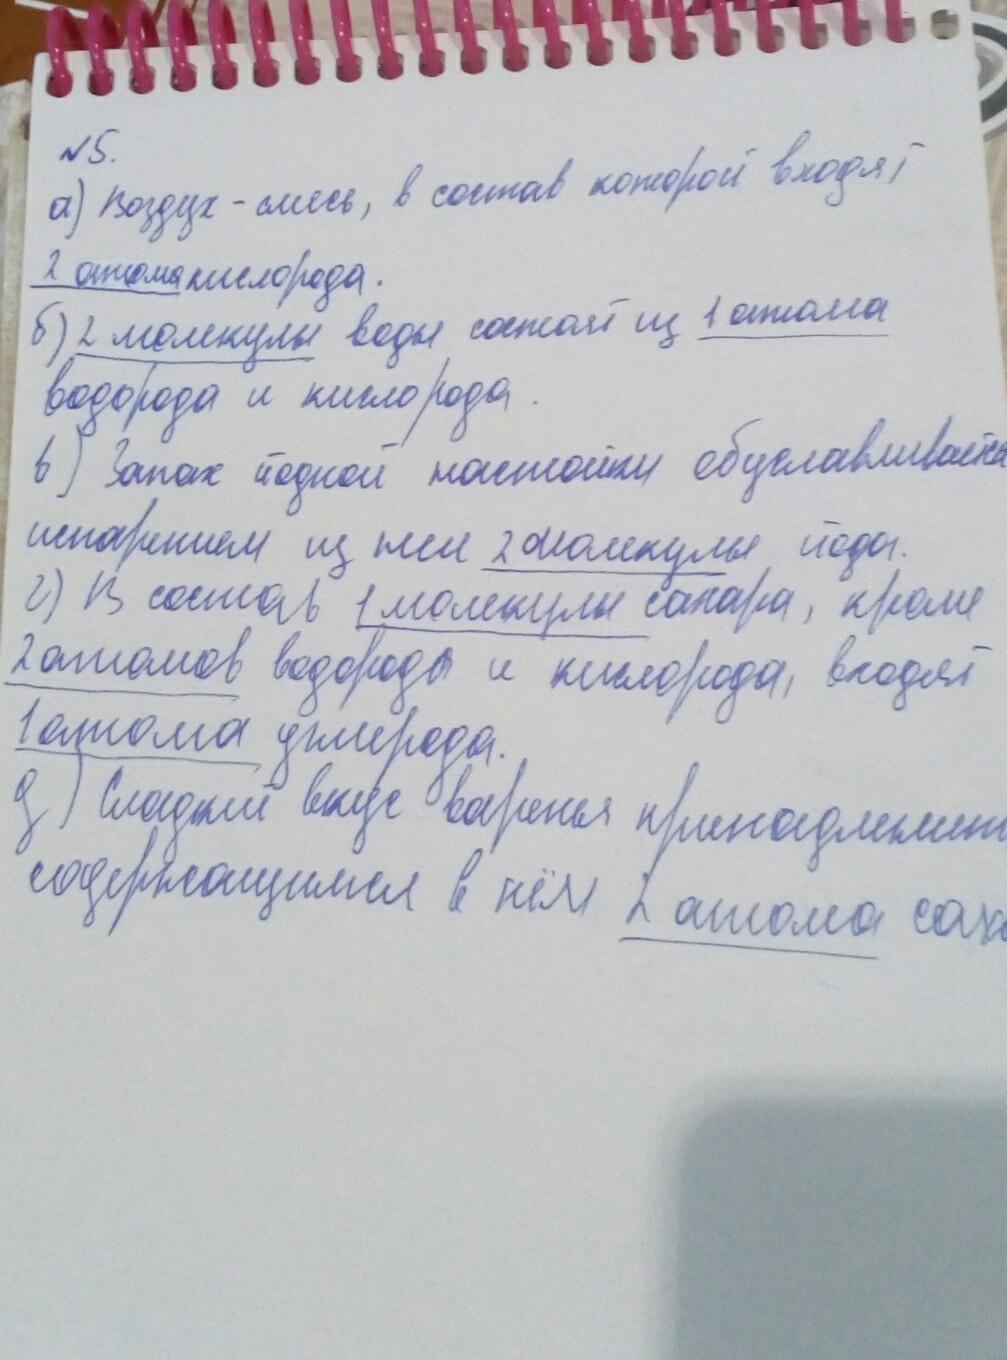 №5.
а) Воздух - смесь, в состав которой входят
2 атома кислорода.
б) 2 молекулы воды состоят из 1 атома
водорода и кислорода.
в) Запах йодной настойки обуславливается
испарением из неи 2 молекулы йода.
г) В состав 1 молекулы сахара, кроме
2 атомов водорода и кислорода, входят
1 атома углерода.
д) Сладкий вкус варенья принадлежит
содержащимся в нём 2 атома саха